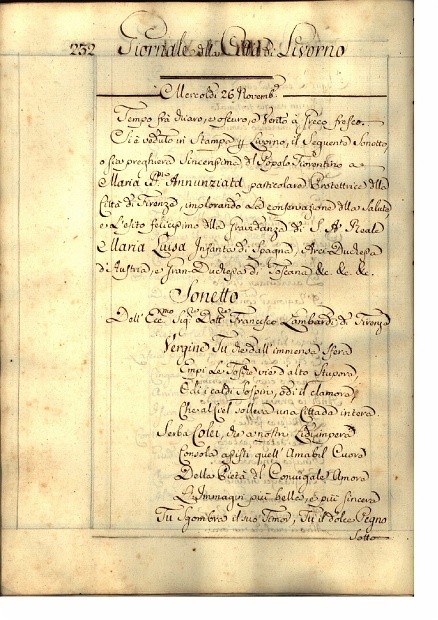 232 Giornale della Città di Livorno
Mercoldì 26 Novemb.e
Tempo fra chiaro, e oscuro, e Vento a Greco fresco.
Si è veduto in Stampa p Livorno, il Seguente Sonetto,
o sia preghiera Sincerissima del Popolo Fiorentino a
Maria SS.mo Annunziata particolare Protettrice della
Città di Firenze, implorando la conservazione della Salute
e l'esito felicissimo della Gravidanza di S. A. Reale
Maria Luisa Infanta di Spagna, Arci-Duchessa
d'Austria, e Gran-Duchessa di Toscana &c. &c. &c.
Sonetto
Dell' Ecc.mo Sig.re Dott.re Francesco Lombardi di Firenze
Vergine Tu che dall'immensa Sfera
Empi Le Tosche vie d'alto Stupore
Odi i caldi Sospir, odi il clamore
Che al Ciel solleva una Cittade intera.
Serba Colei, che a nostri Lidi impera
Consola quell' Amabil Cuore
Della Pietà del Coniugale Amore
L'Immagin più bella, e più sincera
Tu Sgombra il suo Timor, Tu il dolce Pegno
Sotto